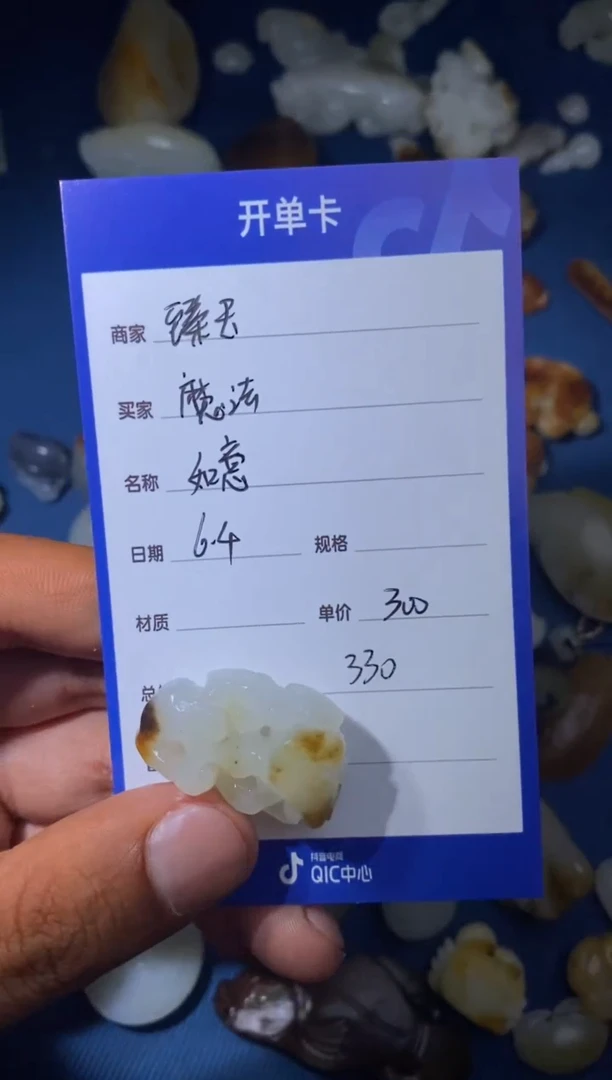 开单卡
商家 臻天
买家 魔法
名称 如意
日期 6.4 规格
材质 单价 300
总 330
抖音电商
QIC中心